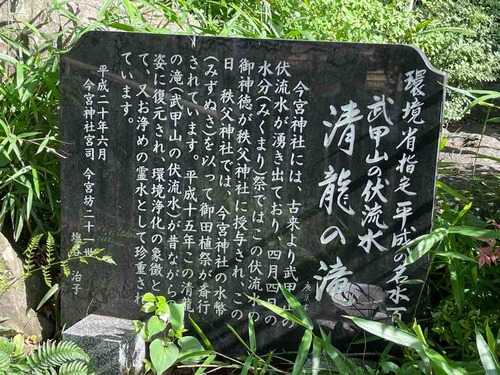 環境省指定 平成の名水百
武甲山の伏流水
清龍の滝
今宮神社には、古来より武甲山の
伏流水が湧き出ており、四月四日の
水分(みくまり)祭ではこの伏流水の
御神徳が秩父神社に授与され、この
日 秩父神社では、今宮神社の水幣
(みずぬさ)を以って御田植祭が斎行
されています。平成十五年この清龍
の滝(武甲山の伏流水)が昔ながらの
姿に復元され、環境浄化の象徴とし
て、又お浄めの霊水として珍重され
ています。
平成二十年六月
今宮神社宮司 今宮坊二十一世
塩谷 治子